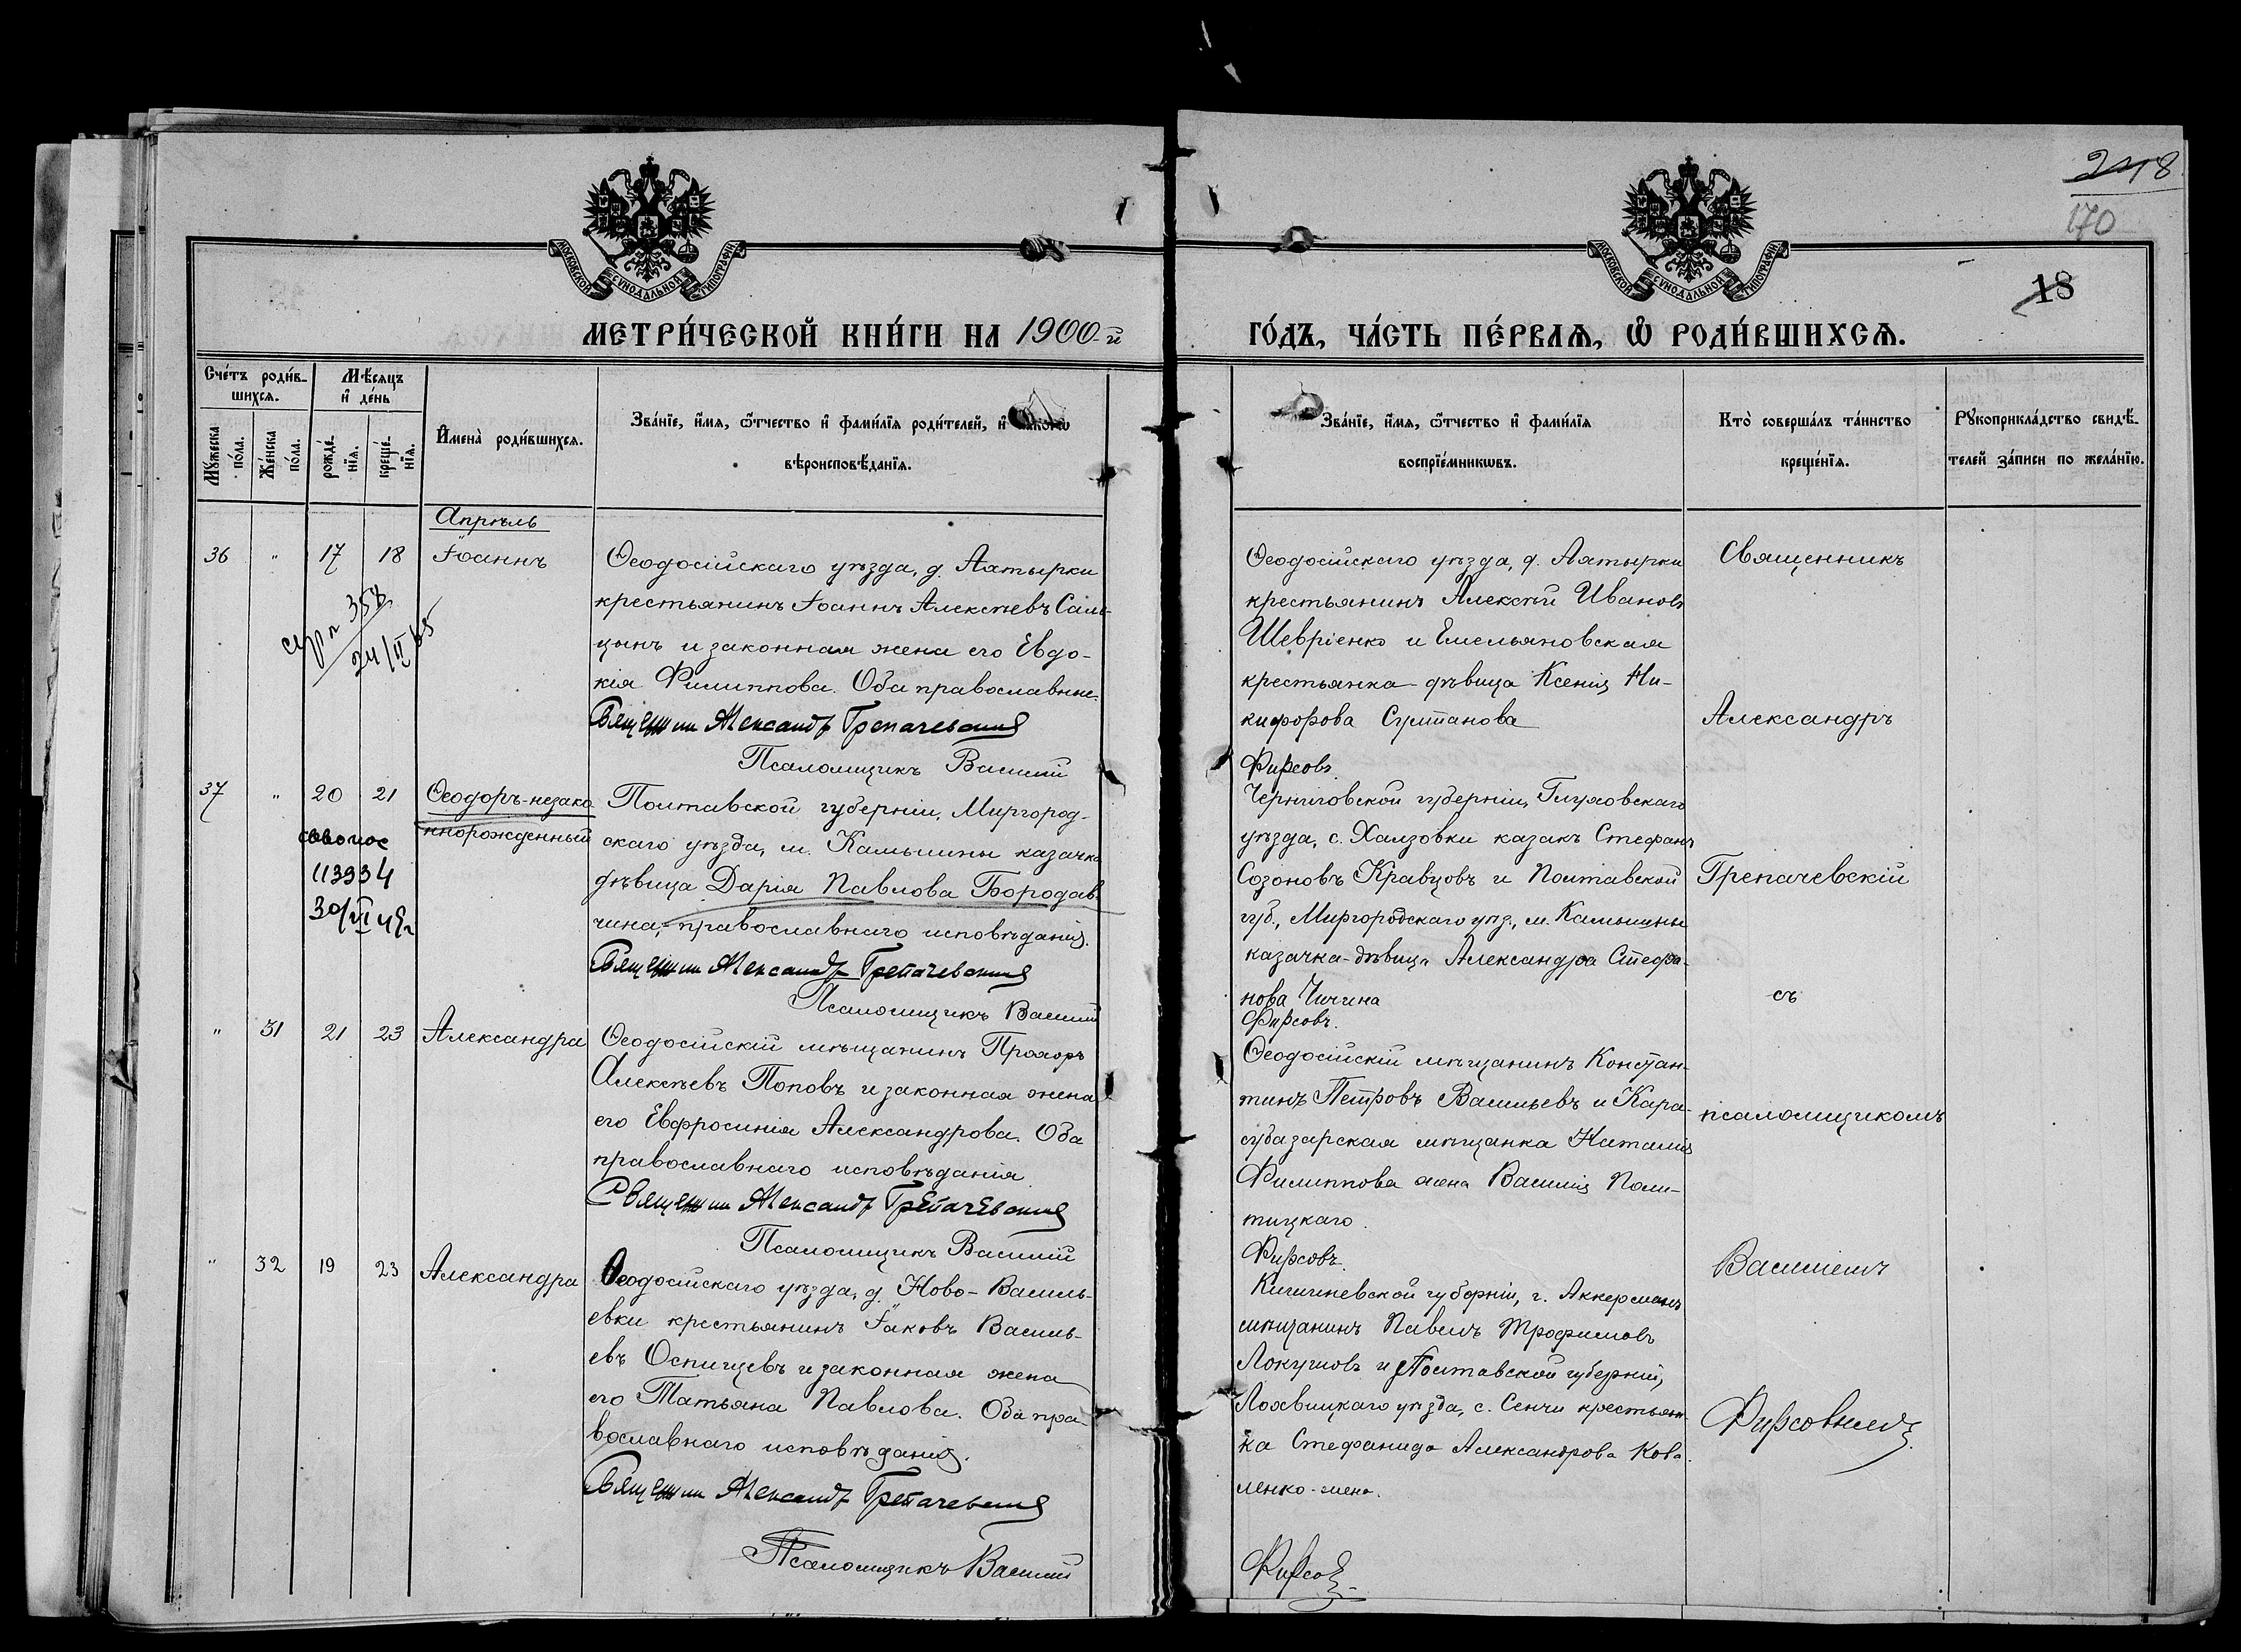 218
170
18
МОСКОВСКОЙ СѴНОДАЛЬНОЙ ТИПОГРАФІИ
МОСКОВСКОЙ СѴНОДАЛЬНОЙ ТИПОГРАФІИ
МЕТРИ́ЧЕСКОЙ КНИ́ГИ НА 1900-й
ГО́ДЪ, ЧА́СТЬ ПЕ́РВАѦ, Ѽ РОДИ́ВШИХСѦ.
Сче́тъ роди́в-
шихсѧ.
Мѣ́сѧцъ
и҆ де́нь
Мꙋ́жеска
по́ла.
Же́нска
по́ла.
рожде́-
нїѧ.
креще́-
нїѧ.
И҆мена̀ роди́вшихсѧ.
Зва́нїе, и҆́мѧ, ѻ҆́тчество и҆ фами́лїѧ роди́телей, и҆
вѣроисповѣ́данїѧ.
Зва́нїе, и҆́мѧ, ѻ҆́тчество и҆ фами́лїѧ
воспрїе́мникѡвъ.
Кто̀ соверша́лъ та́инство
креще́нїѧ.
Рꙋкоприкла́дство свидѣ́-
телей за́писи по жела́нїю.
Апрѣль
36 " 17 18 Іоаннъ
Ѳеодосійскаго уѣзда, д. Ахтырки
крестьянинъ Іоаннъ Алексѣевъ Саль-
цынъ и законная жена его Евдо-
кія Филиппова. Оба православные.
Священник Александръ Грепачевскій
Псаломщикъ Василій
Ѳеодосійскаго уѣзда, д. Ахтырки
крестьянинъ Алексѣй Ивановъ
Шевріенко и Емельяновская
крестьянка-дѣвица Ксенія Ни-
кифорова Султанова
Фирсовъ.
358
24/II 65
37 " 20 21 Ѳеодоръ-незако-
ннорожденный
113934
Полтавской губерніи, Миргород-
скаго уѣзда, м. Камышны казачка
дѣвица Дарія Павлова Бородав-
чина, православнаго исповѣданія.
Священник Александръ Грепачевскій
Псаломщикъ Василій
Черниговской губерніи, Глуховскаго
уѣзда, с. Халзовки казакъ Стефанъ
Созоновъ Кравцовъ и Полтавской
губ., Миргородскаго уѣз., м. Камышны
казачка-дѣвица Александра Стефа-
нова Чичина
Фирсовъ.
" 31 21 23 Александра
Ѳеодосійскій мѣщанинъ Прохоръ
Алексѣевъ Поповъ и законная жена
его Евфросинія Александрова. Оба
православнаго исповѣданія.
Священник Александръ Грепачевскій
Псаломщикъ Василій
Ѳеодосійскій мѣщанинъ Констан-
тинъ Петровъ Васильевъ и Кара-
субазарская мѣщанка Наталія
Филиппова жена Василія Поли-
тицкаго.
Фирсовъ.
" 32 19 23 Александра
Ѳеодосійскаго уѣзда, д. Ново-Василь-
евки крестьянинъ Іаковъ Василь-
евъ Оспищевъ и законная жена
его Татьяна Павлова. Оба пра-
вославнаго исповѣданія.
Священник Александръ Грепачевскій
Псаломщикъ Василій
Кишиневской губерніи, г. Аккерманъ
мѣщанинъ Павелъ Трофимовъ
Локушовъ и Полтавской губерніи,
Лохвицкаго уѣзда, с. Сенчи крестьян-
ка Стефанида Александрова Кова-
ленко-жена.
Фирсовъ
Священникъ
Александръ
Грепачевскій
съ
псаломщикомъ
Василіемъ
Фирсовымъ.